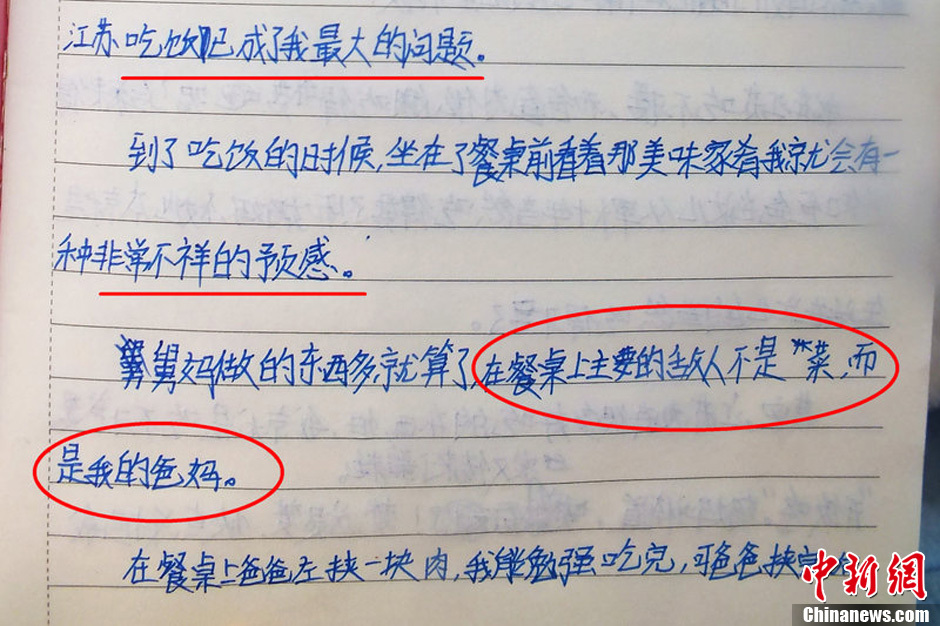 江苏吃饭已成了我最大的问题。
到了吃饭的时候,坐在了餐桌前看着那美味家肴我就会有一
种非常不祥的预感。
舅舅妈做的东西多就算了,在餐桌上主要的敌人不是"菜,而
是我的爸妈。
在餐桌上爸爸左挟一块肉,我能勉强吃完,可爸爸挟完
中新网
Chinanews.com